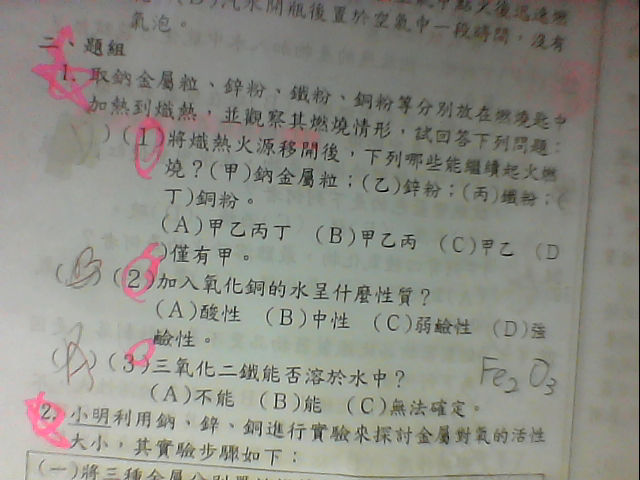 (D)汽水開瓶後置於空氣中一段時間，沒有
氣泡。
二、題組
1. 取鈉金屬粒、鋅粉、鐵粉、銅粉等分別放在燃燒匙中
加熱到熾熱，並觀察其燃燒情形，試回答下列問題：
( ) (1)將熾熱火源移開後，下列哪些能繼續起火燃
燒？(甲)鈉金屬粒；(乙)鋅粉；(丙)鐵粉；(
丁)銅粉。
(A)甲乙丙丁 (B)甲乙丙 (C)甲乙 (D
)僅有甲。
(B) (2)加入氧化銅的水呈什麼性質？
(A)酸性 (B)中性 (C)弱鹼性 (D)強
鹼性。
(A) (3)三氧化二鐵能否溶於水中？ Fe2O3
(A)不能 (B)能 (C)無法確定。
2. 小明利用鈉、鋅、銅進行實驗來探討金屬對氧的活性
大小，其實驗步驟如下：
(一)將三種金屬分別